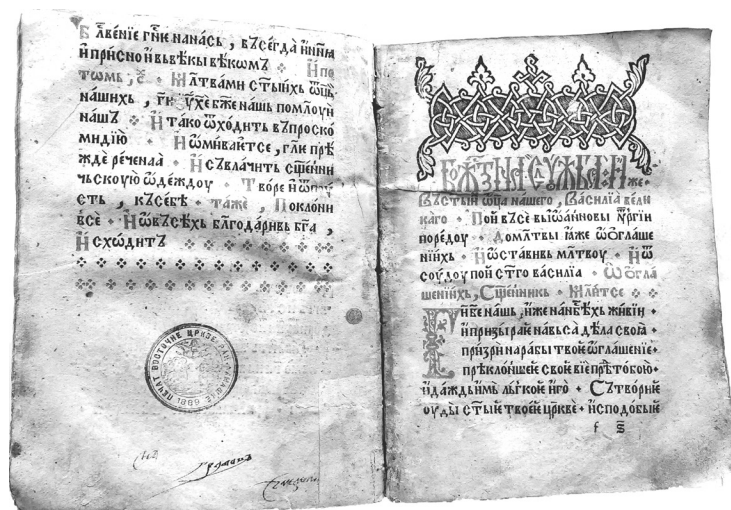 Б лⷭ҇венїе гн҃е нанась , въсегда и҆нн҃ꙗ
и҆ присно и҆ вывѣкы вѣкомъ И҆ по
томь , Мл҃твами ст҃ыихь ѿц҃ь
нашихь , ги҃ і҆ѵ҃хе бж҃е нашь помлоуи
нашЪ И҆ тако ѿходить въпроско
мидїю И҆ ѡ҆мивает се , гл҃и прѣ
жде реченаа И҆ съвлачить сщ҃енни
чьскоую ѡ҆деждоу Творе и҆
сть , къ себѣ таже , Поклони
все И҆ ѡ҆ въсѣхь бл҃годаривь бг҃а ,
И҆ сходитЪ
Бож҃тнаꙗ слꙋжба И҆же
въ ст҃ыи ѿц҃а нашего , Василїа вели
каго Пои въсе вы ї҆ѡ҆анновы
поредоу до мл҃твы ꙗже ѡ҆ ѡ҆глаше
нїихь И҆ ѡ҆ставивь мл҃твоу И҆ ѿ
соудоу пои ст҃го василїа Ѡ҆ ѡ҆гла
шенїихь , Сщ҃енникь Мл҃итсе
Ги҃ бе҃ нашь , и҆же на нб҃ѣхь живїи
и҆ призыраѥ на вьса дѣла своꙗ
призри на рабы твоѥ ѡ҆глашенїе
прѣклоншеѥ своѥ вїе прѣ тобою
и҆ даждь имь льгкоѥ и҆го Сътвори ѥ
оуды ст҃ыѥ твоѥѥ цр҃кве и҆ сподобы ѥ
ПЕЧАТ ВОСТОЧНЕ ЦРКВЕ